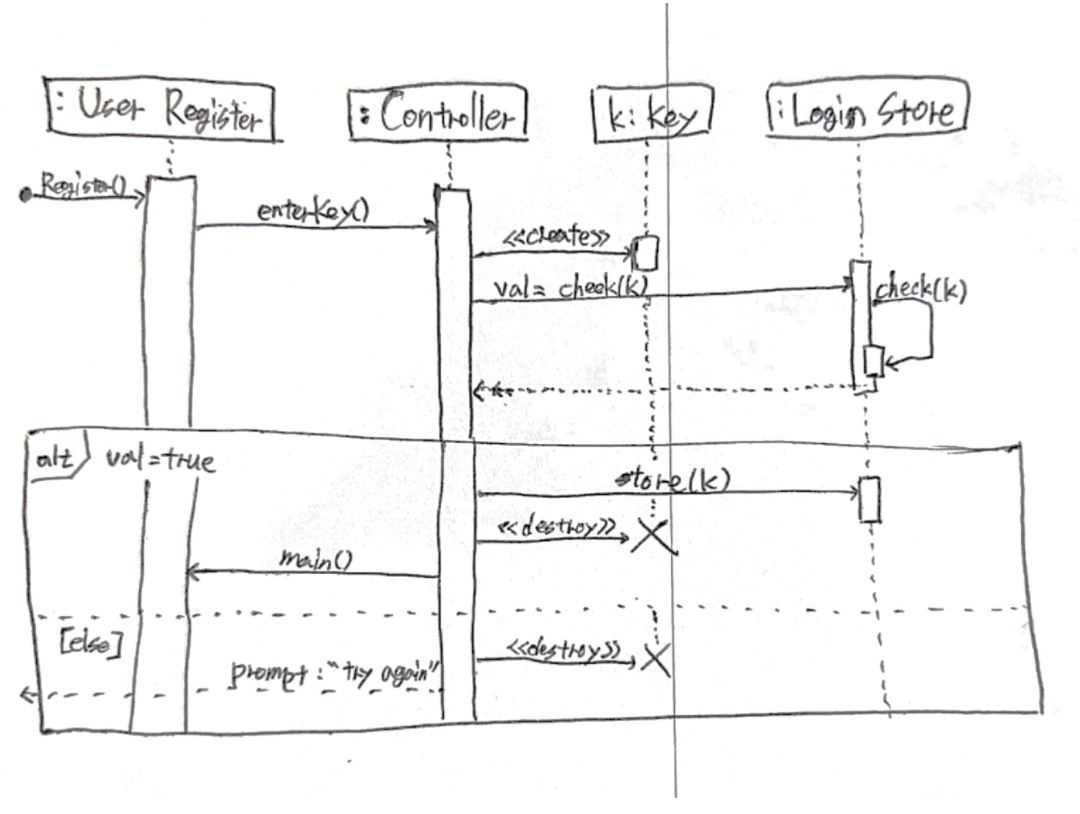 : User Register
: Controller
k: Key
: Login Store
Register()
enterKey()
<<create>>
val= check(k)
check(k)
alt
val=true
store(k)
<<destroy>>
main()
[else]
<<destroy>>
prompt: "try again"